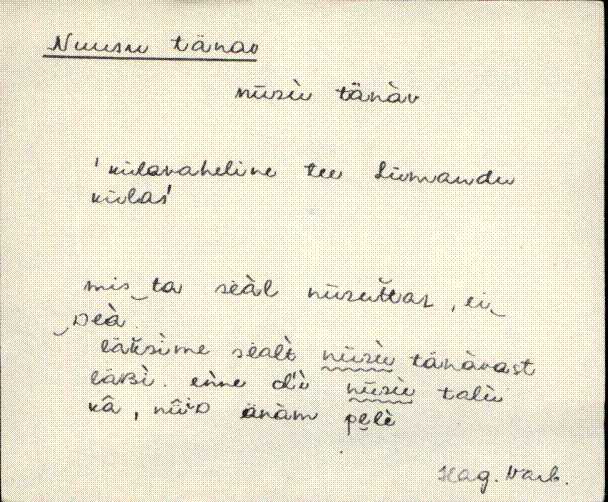 Nuusu tänav
nūsù tänàv
'külavaheline tee Liivamandu
külas'
mis‿ta seàl nūsuttas, ei‿
‿DEÀ
läksime sealt̀ nūsù tänàvast
läBì. enne ol'ì nūsù talù
kâ, nǖD änàm pe̮lè
Hag. Varb.